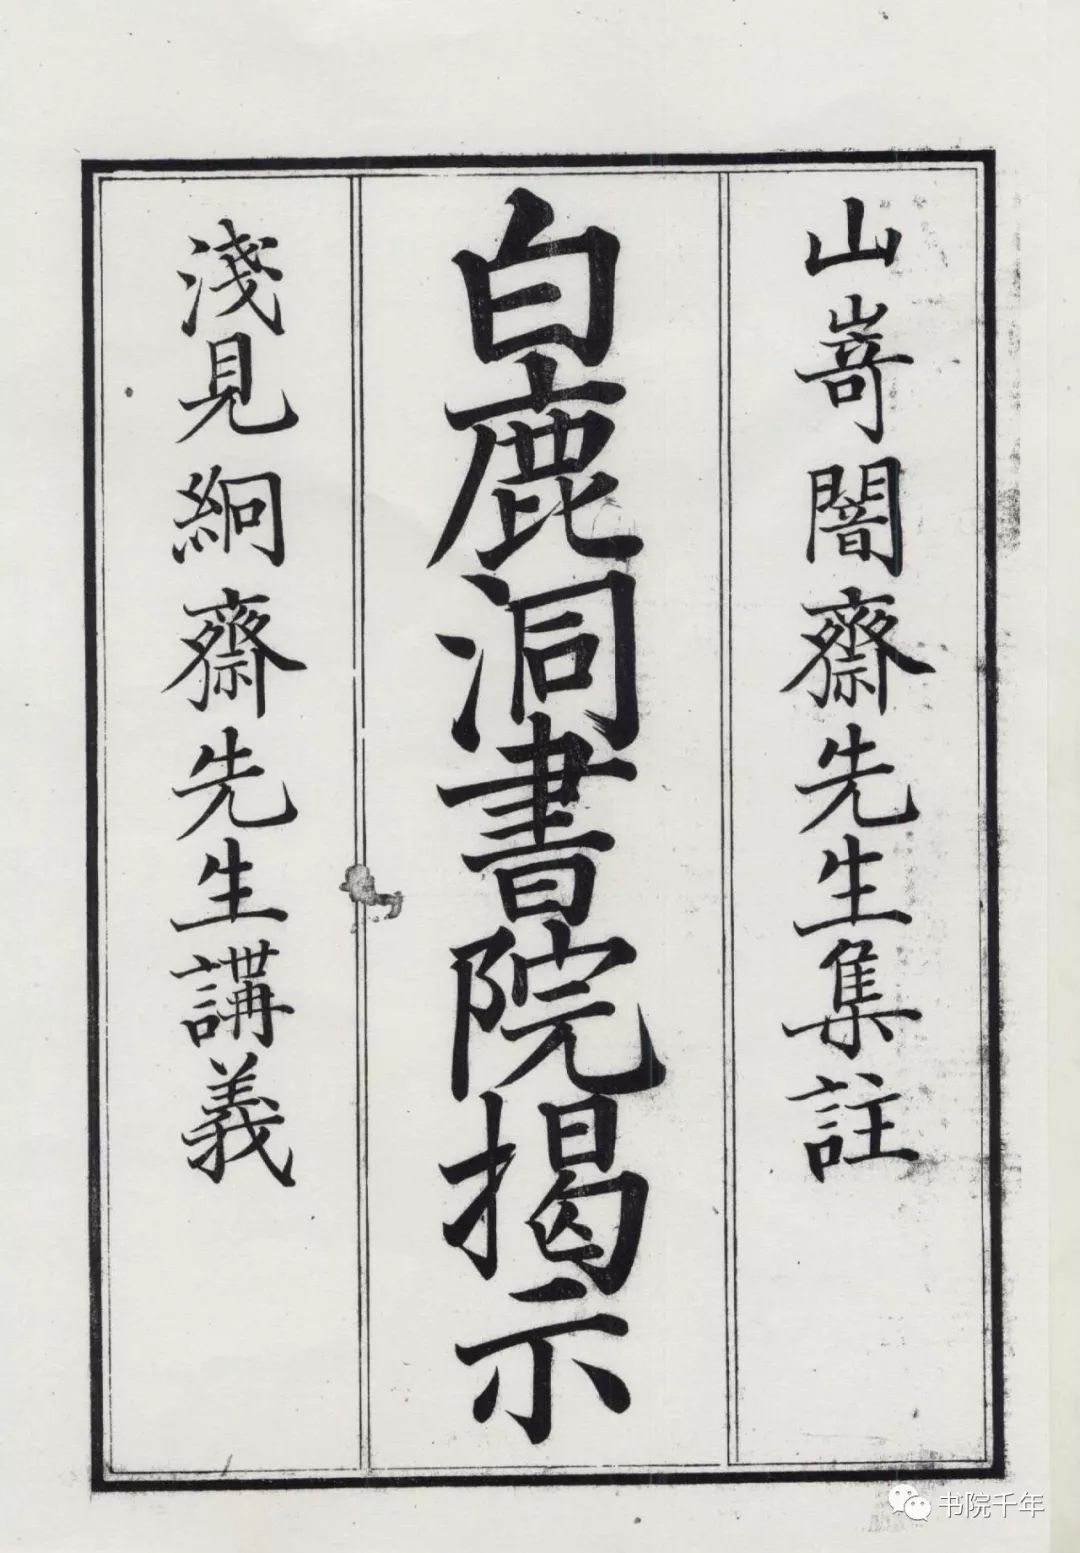 山嵜闇齋先生集註
白鹿洞書院揭示
淺見絅齋先生講義
书院千年